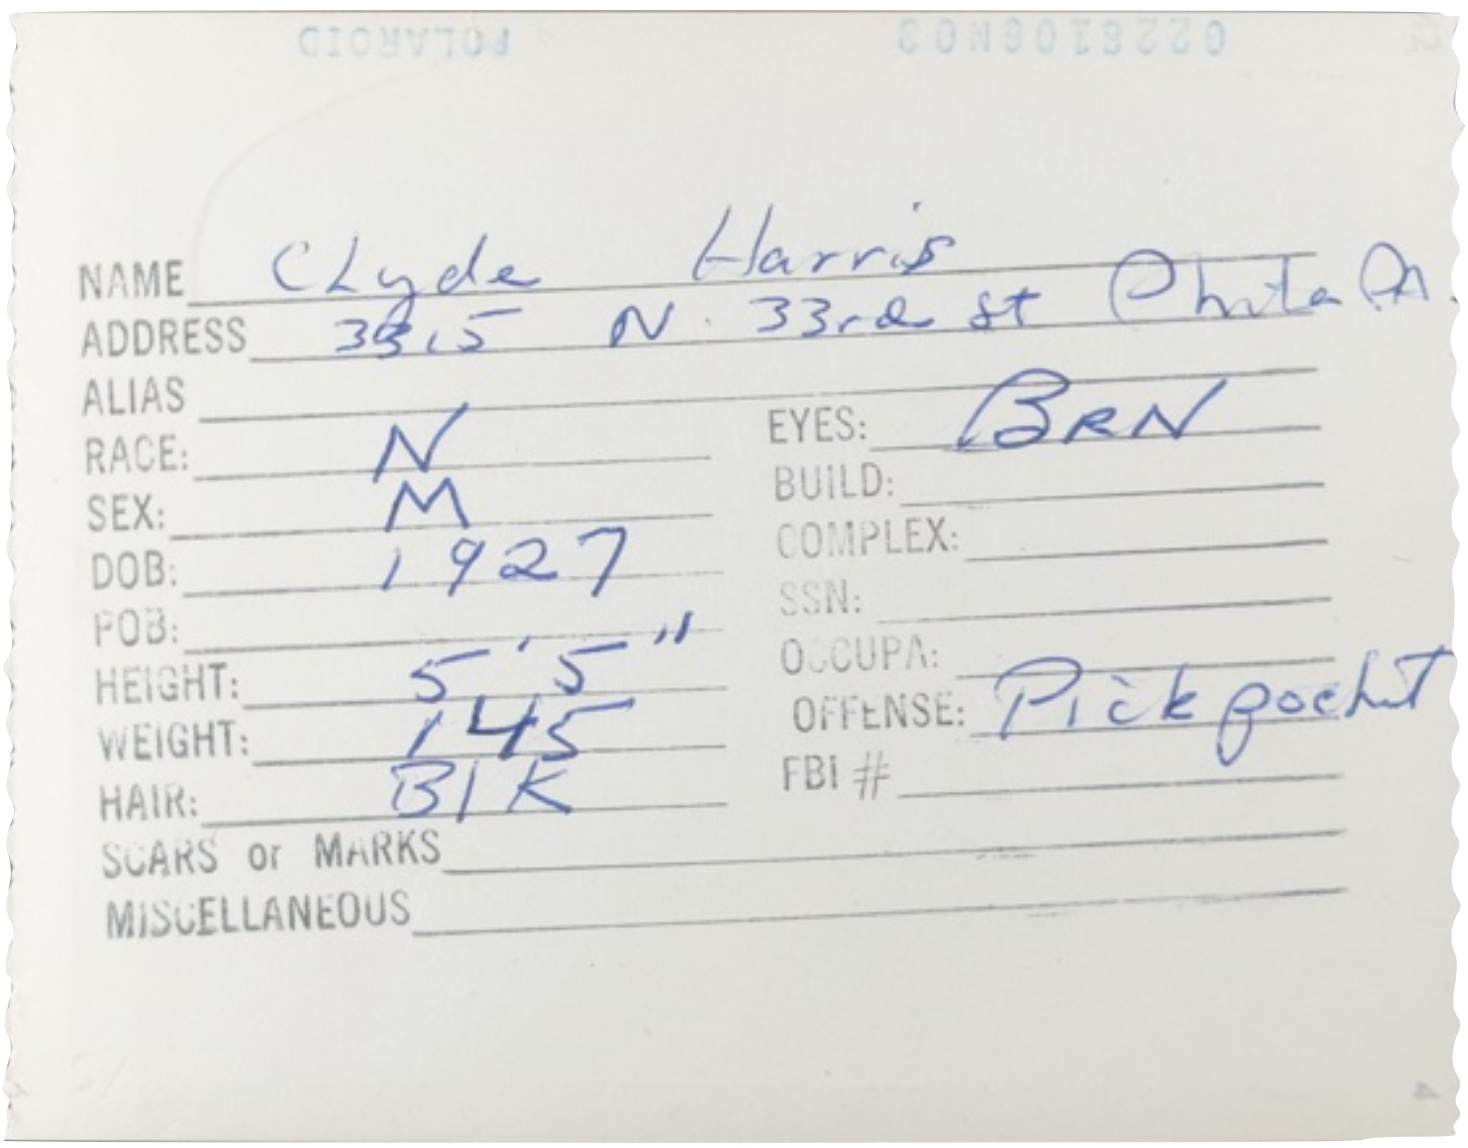 POLAROID
NAME Clyde Harris
ADDRESS N. 33rd St Phila Pa.
ALIAS
RACE: N EYES: BRN
SEX: M BUILD:
DOB: 1927 COMPLEX:
POB: SSN:
HEIGHT: 5'5" OCCUPA:
WEIGHT: 145 OFFENSE: Pick pocket
HAIR: Blk FBI #
SCARS or MARKS
MISCELLANEOUS
4